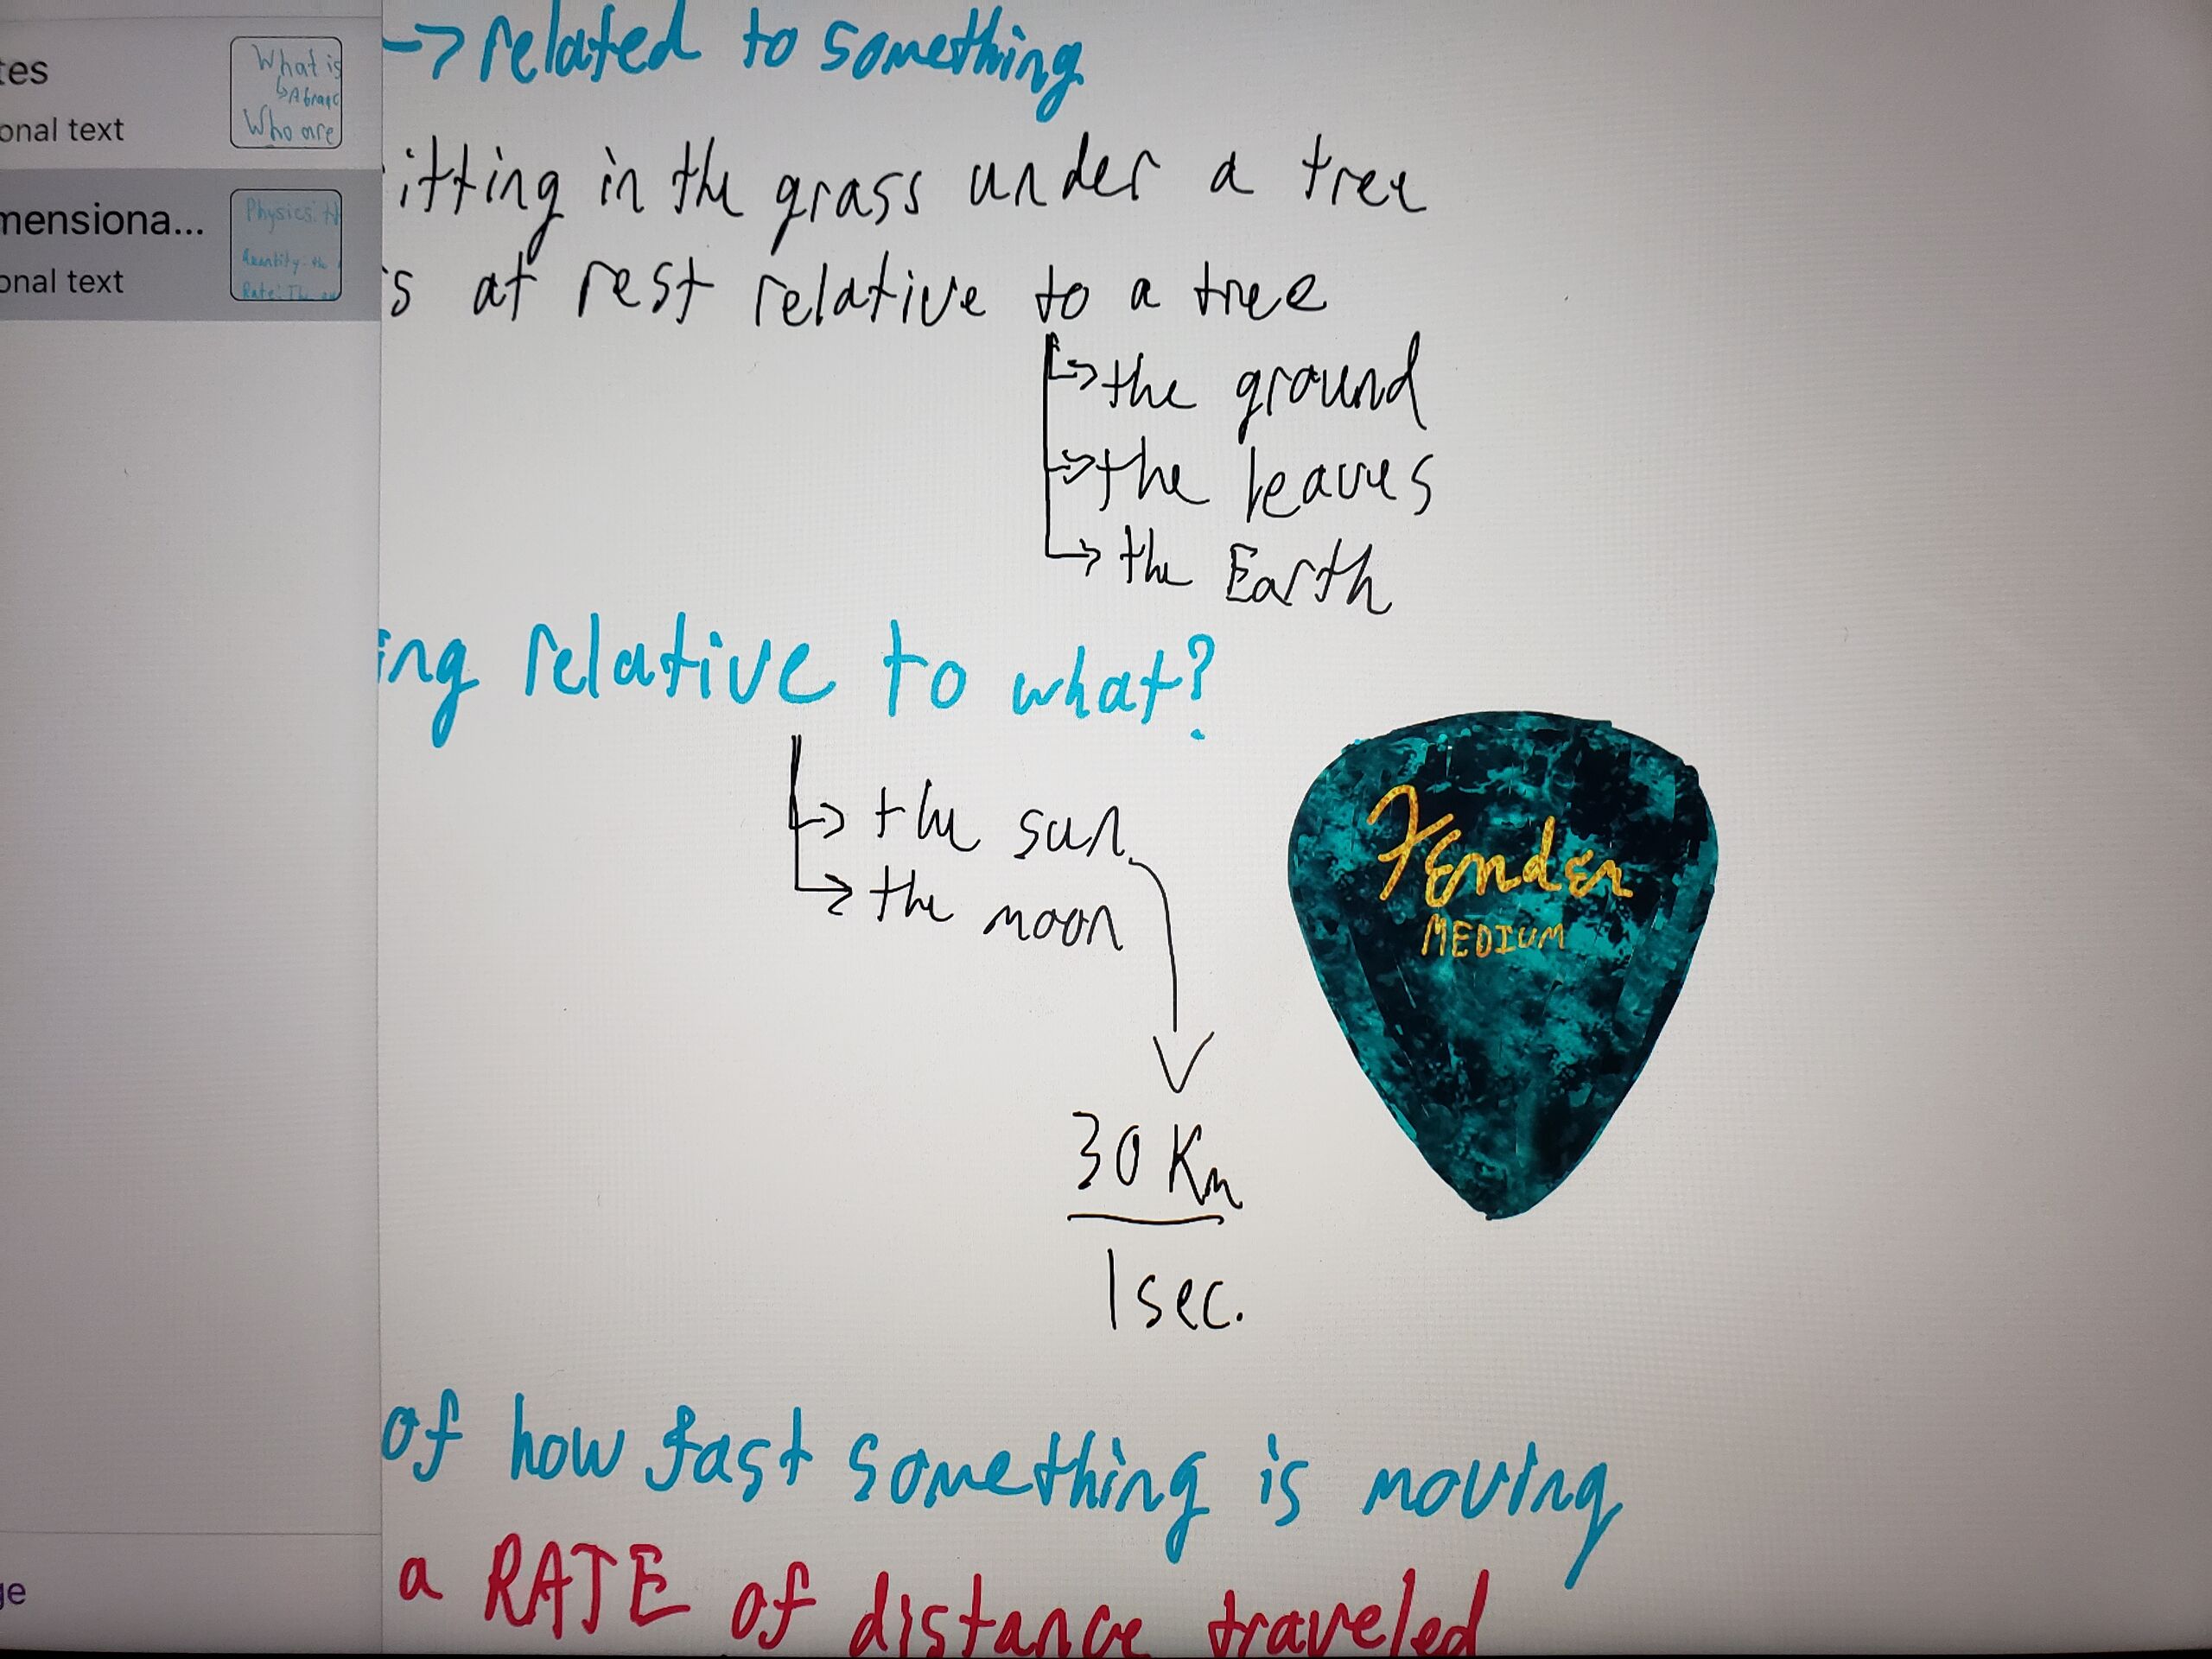 → related to something
tes
What is
↳ A branc
itting in the grass under a tree
onal text
Who are
mensiona...
Physics: th
s at rest relative to a tree
Quantity: the
onal text
Rate: The
→ the ground
→ the leaves
→ the Earth
ing relative to what?
→ the sun
→ the moon
Fender
MEDIUM
30 Km
1 sec.
of how fast something is moving
ge
a RATE of distance traveled